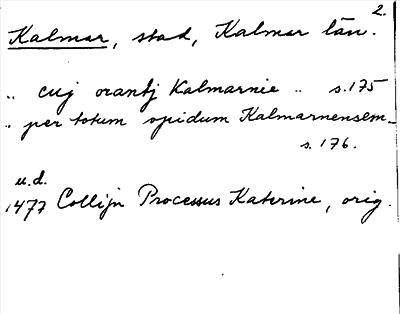 2.
Kalmar, stad, Kalmar län.
" cuj orantj Kalmarnie " s.175
" per totum opidum Kalmarnensem_
s.176.
u.d.
1477 Collijn Processus Katerine, orig.